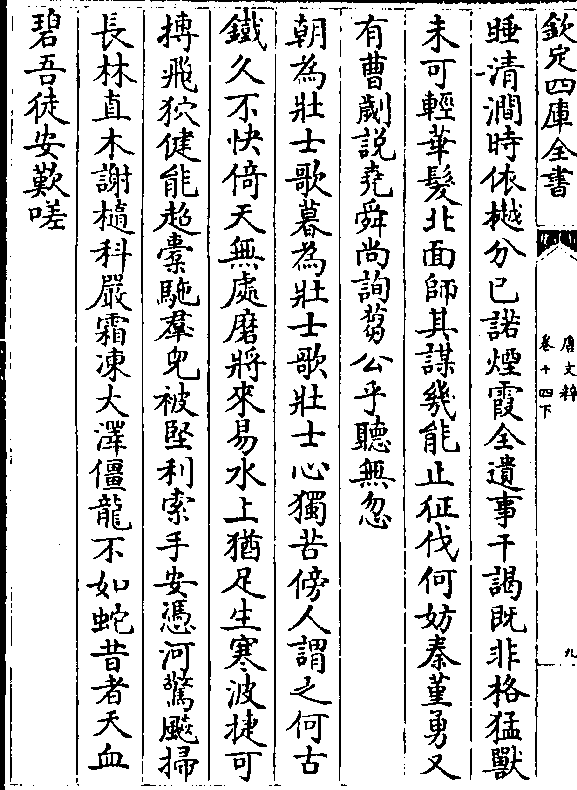 欽定四庫全書
唐文粹
卷十四下
九
睡清澗時依樾分已諾煙霞全遺事干謁既非格猛獸
未可輕華髮北面師其謀幾能止征伐何妨秦堇勇又
有曹劌説堯舜尚詢蒭公乎聽無忽
朝為壯士歌暮為壯士歌壯士心獨苦傍人謂之何古
鐵久不快倚天無處磨將來易水上猶足生寒波捷可
搏飛狖健能超橐馳羣兕被堅利索手安憑河驚飈掃
長林直木謝樀科嚴霜凍大澤僵龍不如蛇昔者天血
碧吾徒安歎嗟